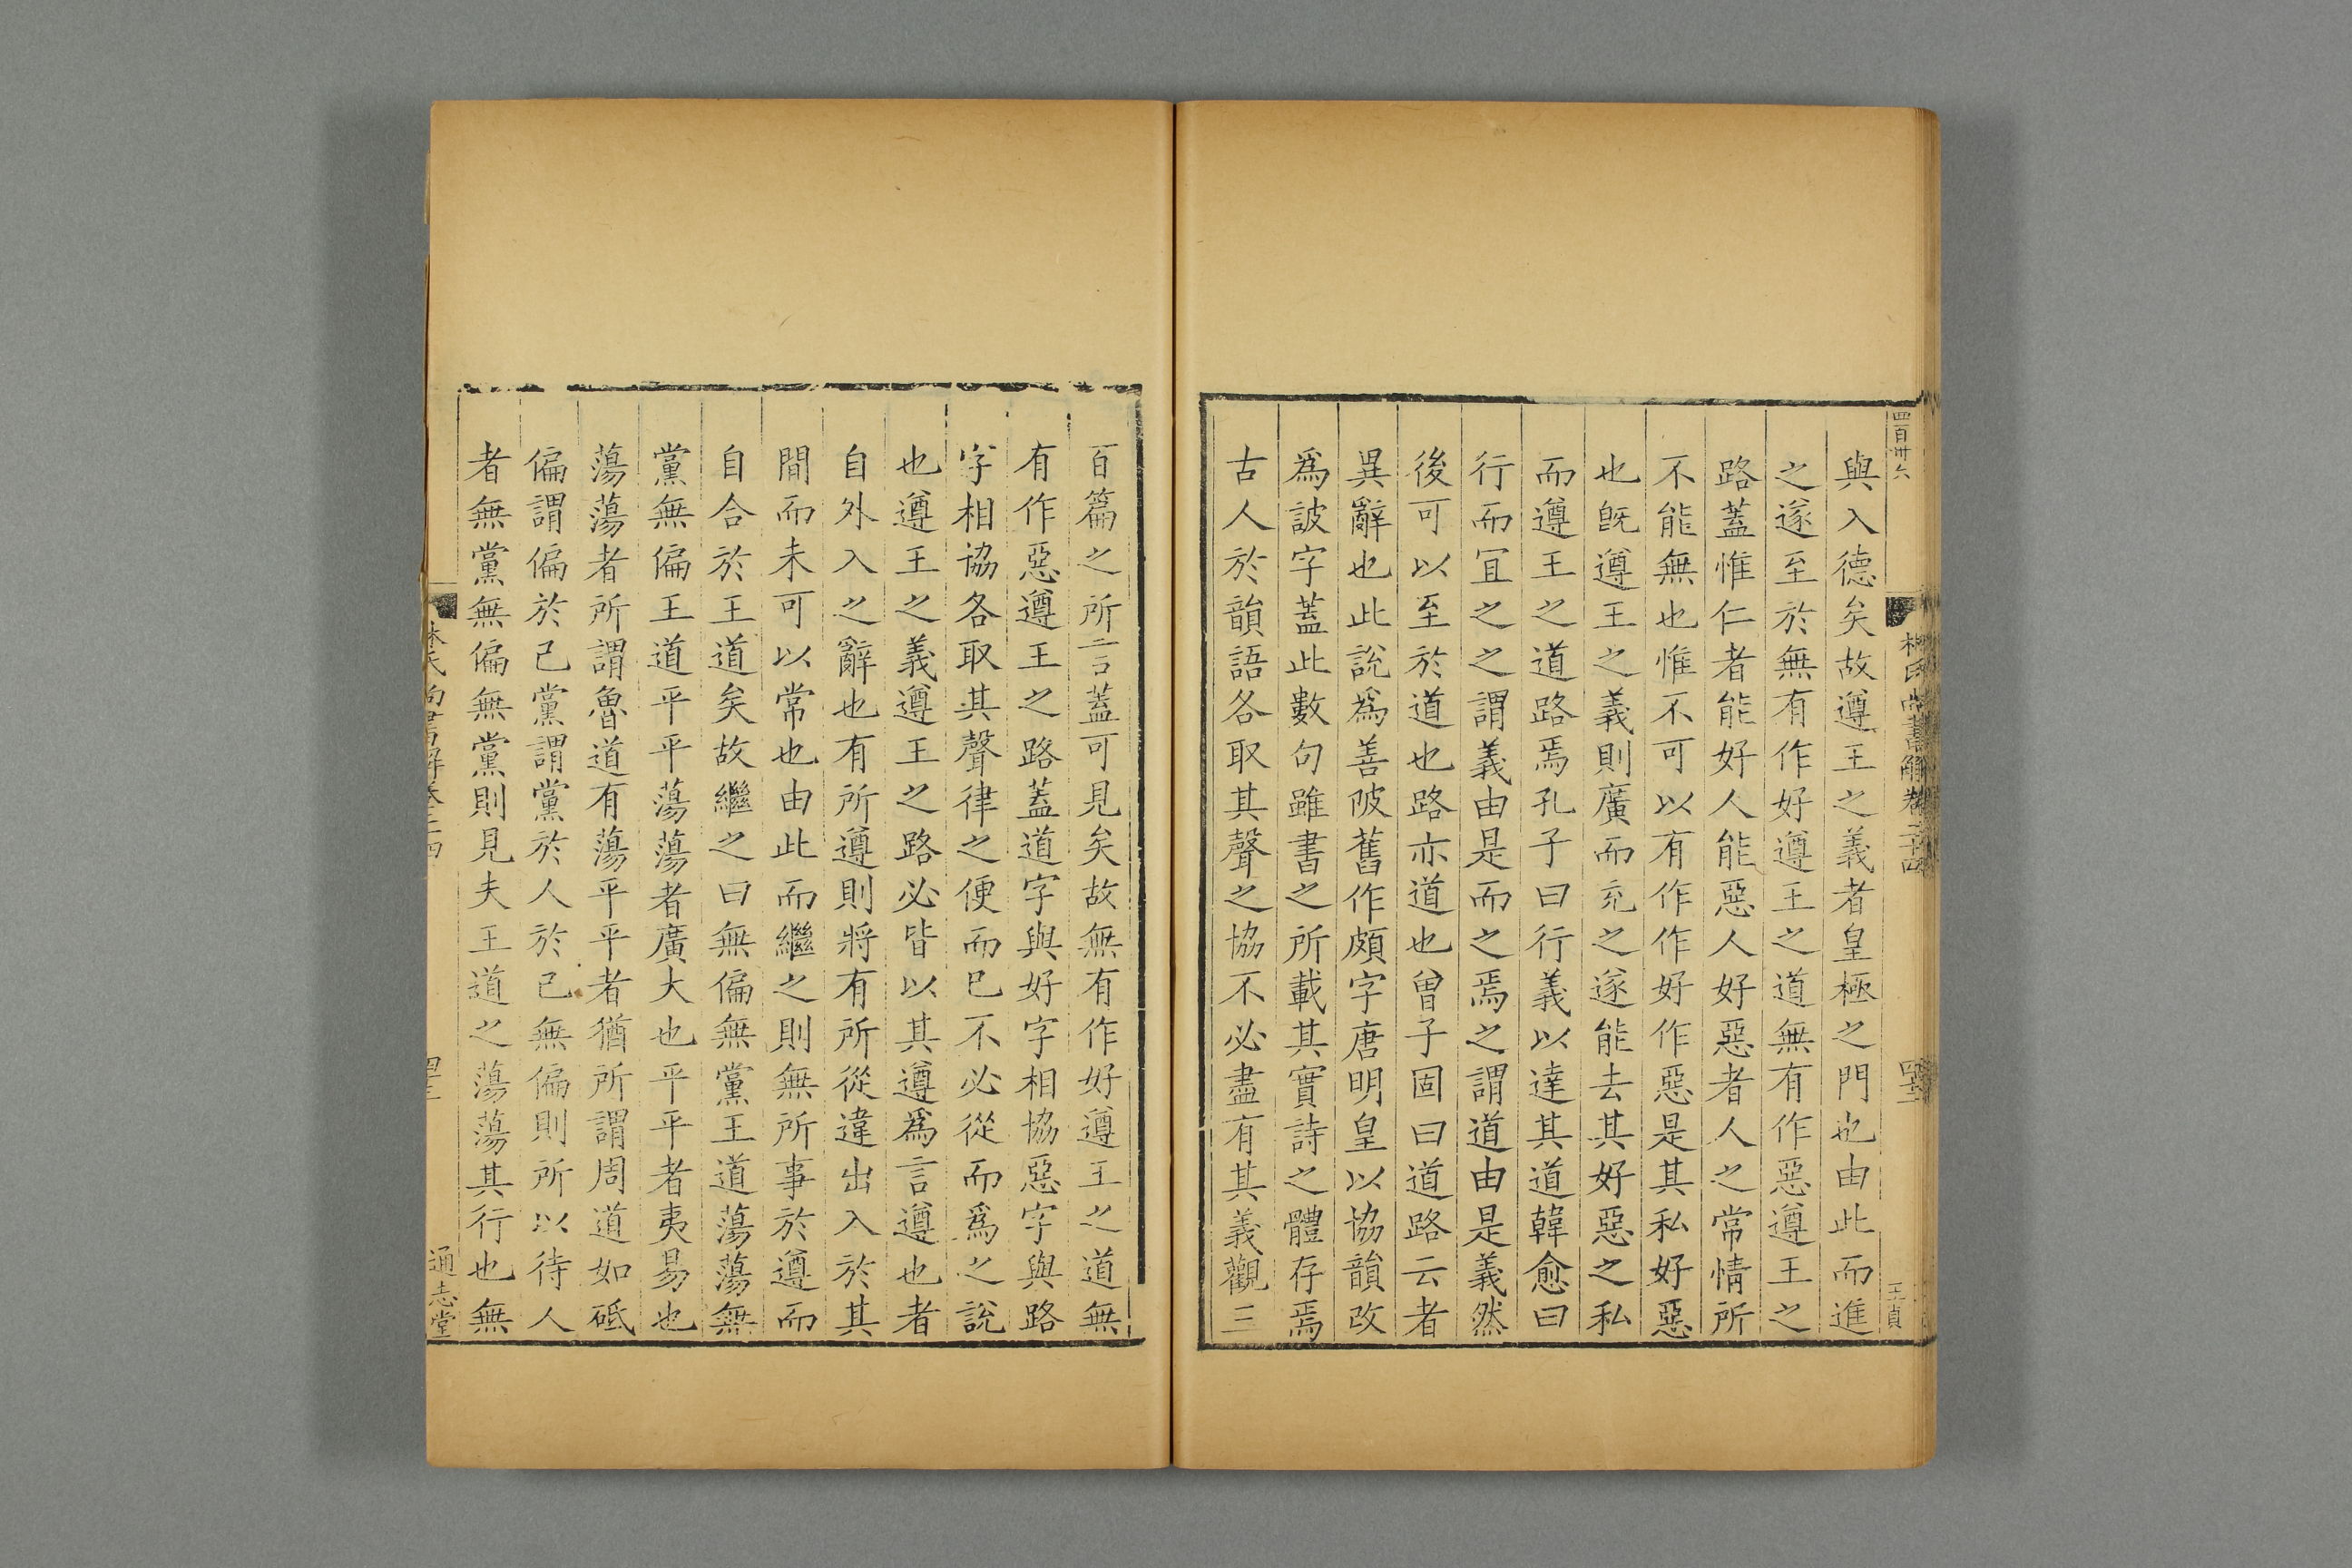 四百卅六
林氏尚書解卷二十四
王貞
與入德矣故遵王之義者皇極之門也由此而進
之遂至於無有作好遵王之道無有作惡遵王之
路蓋惟仁者能好人能惡人好惡者人之常情所
不能無也惟不可以有作作好作惡是其私好惡
也旣遵王之義則廣而充之遂能去其好惡之私
而遵王之道路焉孔子曰行義以達其道韓愈曰
行而宜之之謂義由是而之焉之謂道由是義然
後可以至於道也路亦道也曾子固曰道路云者
異辭也此說爲善陂舊作頗字唐明皇以協韻改
爲詖字蓋此數句雖書之所載其實詩之體存焉
古人於韻語各取其聲之協不必盡有其義觀三
百篇之所言蓋可見矣故無有作好遵王之道無
有作惡遵王之路蓋道字與好字相協惡字與路
字相協各取其聲律之便而巳不必從而爲之說
也遵王之義遵王之路必皆以其遵爲言遵也者
自外入之辭也有所遵則將有所從違出入於其
間而未可以常也由此而繼之則無所事於遵而
自合於王道矣故繼之曰無偏無黨王道蕩蕩無
黨無偏王道平平蕩蕩者廣大也平平者夷易也
蕩蕩者所謂魯道有蕩平平者猶所謂周道如砥
偏謂偏於己黨謂黨於人於己無偏則所以待人
者無黨無偏無黨則見夫王道之蕩蕩其行也無
林氏尚書解卷二十四
通志堂